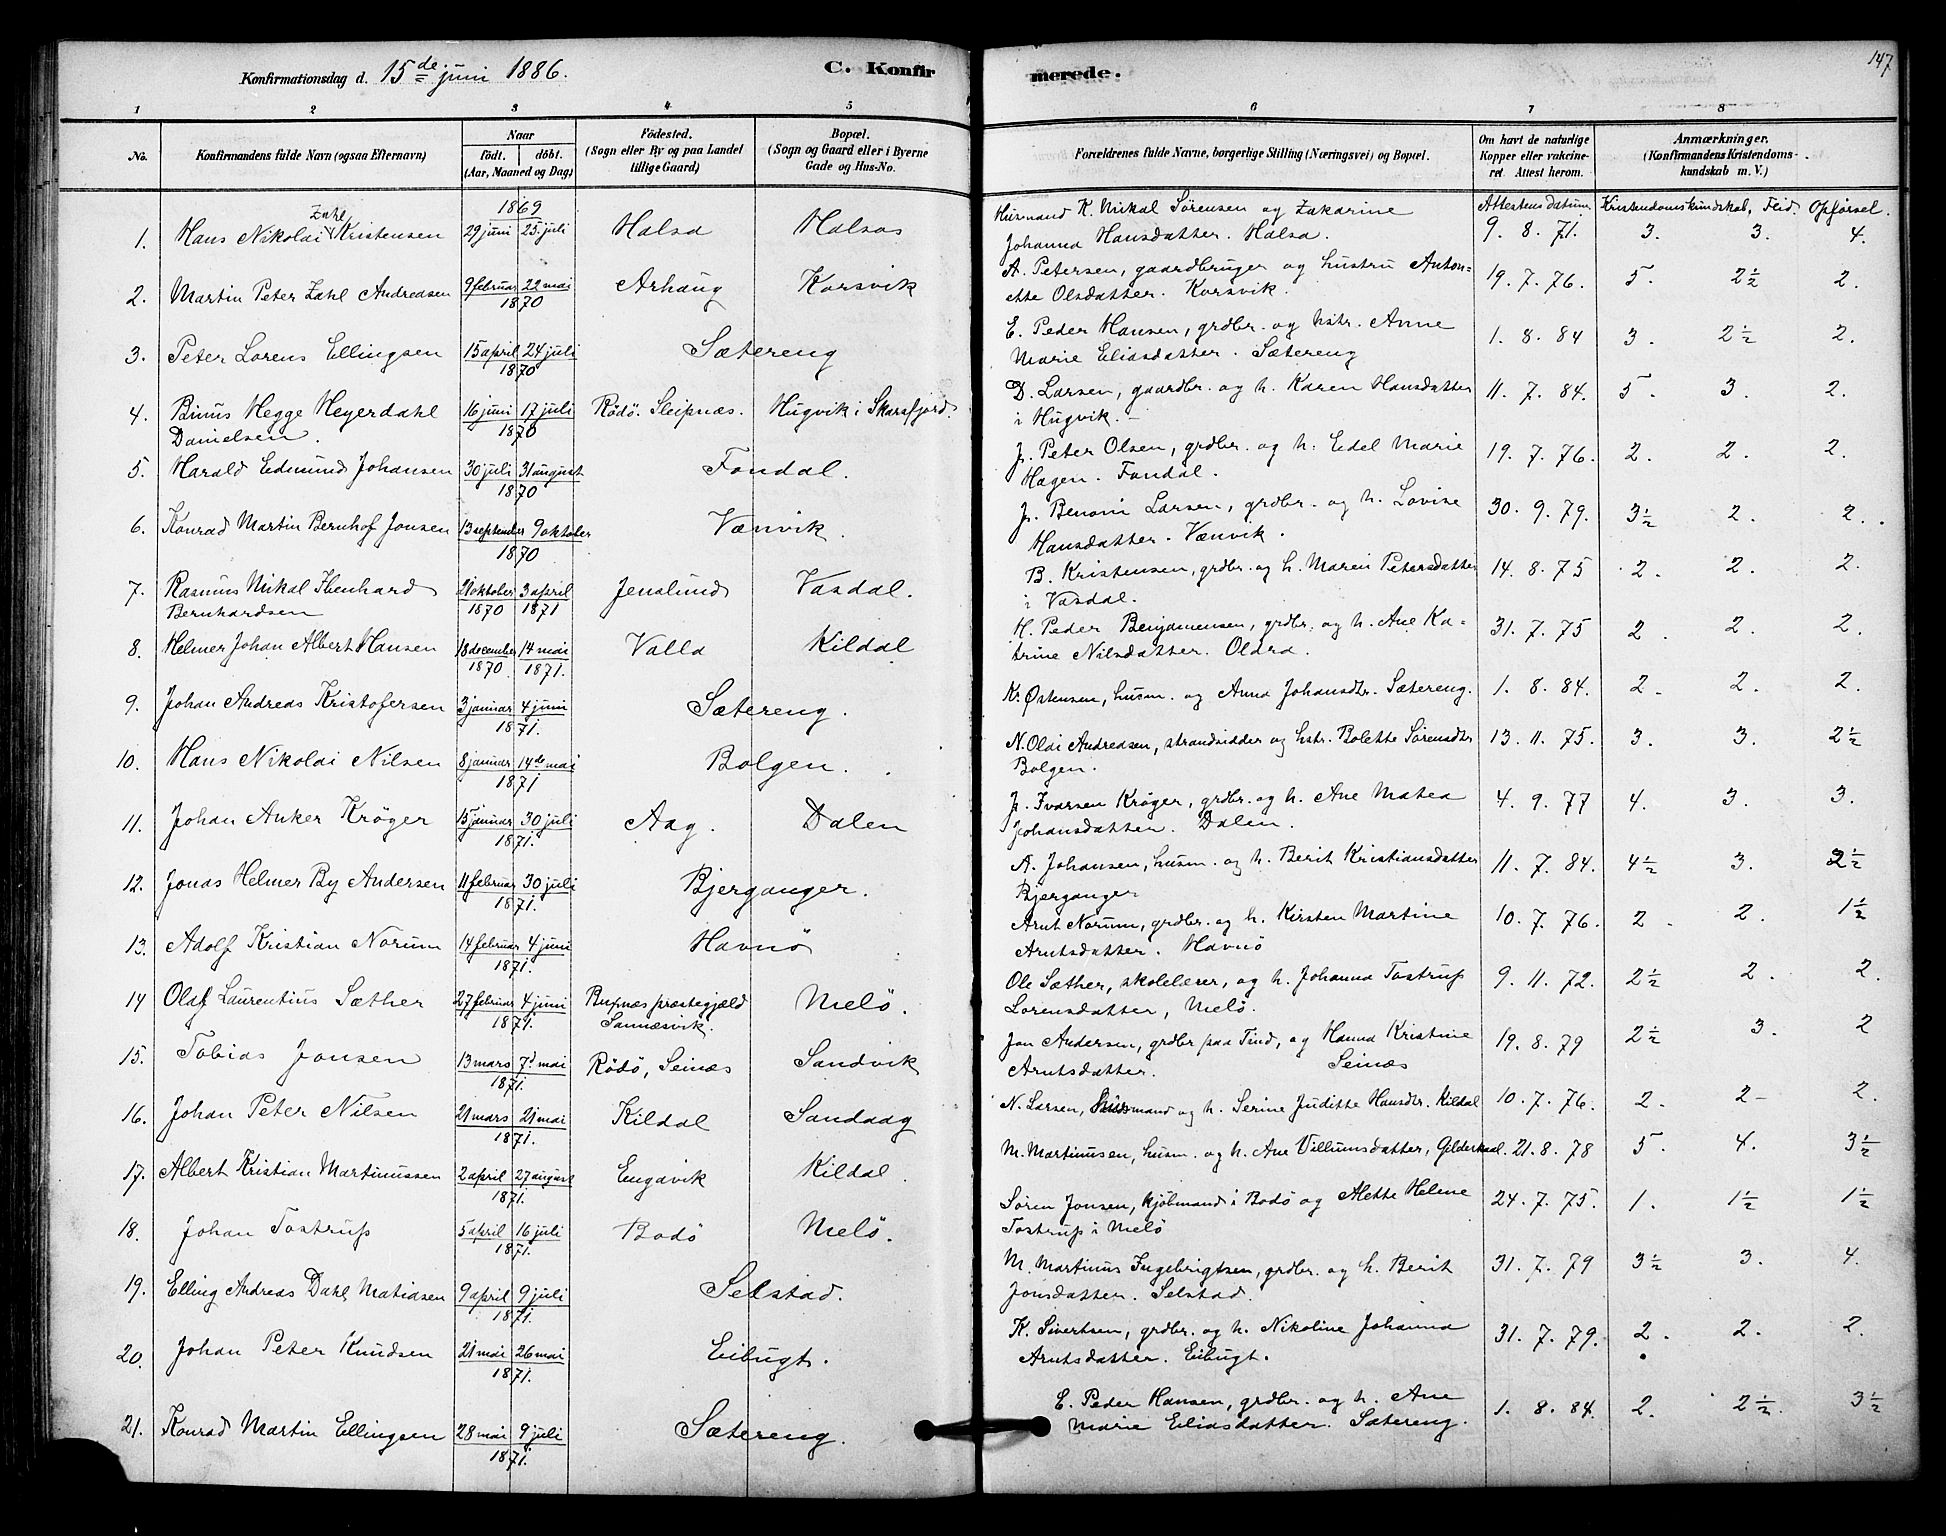 147
Konfirmationsdag d. 15de juni 1886. C. Konfirmerede.
1 2 3 4 5 6 7 8
No. Konfirmandens fulde Navn (ogsaa Efternavn) Naar födt. döbt. (Aar, Maaned og Dag) Födested. (Sogn eller By og paa Landet tillige Gaard) Bopæl. (Sogn og Gaard eller i Byerne Gade og Hus-No.) Forældrenes fulde Navne, borgerlige Stilling (Næringsvei) og Bopæl. Om havt de naturlige Kopper eller vakcineret. Attest herom. Anmærkninger. (Konfirmandens Kristendomskundskab m. V.)
Attestens datum. Kristendomskundskab, Flid. Opförsel.
1. Hans Nikolai Zahl Kristensen 1869 29 juni 25 juli Halsa Halsos Husmand K. Mikal Sörensen og Zakarine
Johanna Hansdatter. Halsa. 9. 8. 71. 3. 3. 4.
2. Martin Peter Zahl Andreasen 9 februar 22 mai 1870 Arhaug Korsvik A. Petersen, gaardbruger og hustru Anton=
ette Olsdatter. Korsvik. 19. 7. 76. 5. 2½ 2.
3. Peter Lorens Ellingsen 15 april 24 juli 1870 Sætereng E. Peder Hansen, grdbr. og hstr. Anne
Marie Eliasdatter. Sætereng 1. 8. 84 3. 2½ 2.
4. Binus Hegge Heyerdahl 16 juni 17 juli 1870 Rödö. Sleipnæs. Hugvik i Skarsfjord. D. Larsen, gaardbr. og h. Karen Hansdatter
Danielsen. i Hugvik. 11. 7. 84. 5. 3. 2.
5. Harald Edmund Johansen 30 juli 31 august 1870 Fondal. J. Peter Olsen, grdbr. og h. Edel Marie
Hagen. Fondal. 19. 7. 76. 2. 2. 2.
6. Konrad Martin Bernhof Jonsen 13 september 9 oktober 1870 Vænvik. J. Benoni Larsen, grdbr. og h. Lovise
Hansdatter. Vænvik. 30. 9. 79. 3½ 2. 2.
7. Rasmus Mikal Ibenhard 21 oktober 1870 3 april 1871 Jenslund Vasdal. B. Kristensen, grdbr. og h. Maren Petersdatter
Bernhardsen i Vasdal. 14. 8. 75 2. 2. 2.
8. Helmer Johan Albert Hansen 18 december 1870. 14 mai 1871. Valla Kildal H. Peder Benjamensen, grdbr. og h. Ane Ka=
trine Nilsdatter. Oldra. 31. 7. 75 2. 2. 2.
9. Johan Andreas Kristofersen 3 januar 4 juni 1871. Sætereng. Kr. Östensen, husm. og Anna Johansdtr. Sætereng. 1. 8. 84. 2. 2. 2.
10. Hans Nikolai Nilsen 8 januar 14de mai 1871 Bolgen. N. Olai Andreasen, strandsidder og hstr. Bolette Sörensdtr
Bolgen. 13. 11. 75. 3. 3. 2½
11. Johan Anker Kröger 15 januar 30 juli 1871. Aag. Dalen J. Ivarsen Kröger, grdbr. og h. Ane Matea
Johansdatter. Dalen. 4. 9. 77 4. 3. 3.
12. Jonas Helmer By Andersen 11 februar 30 juli 1871. Bjerganger. A. Johansen, husm. og h. Berit Kristiansdatter
Bjerganger 11. 7. 84. 4½ 3. 2½
13. Adolf Kristian Norum 14 februar 4 juni 1871. Havnö Arnt Norum, grdbr. og h. Kirsten Martine
Arntsdatter. Havnö 10. 7. 76. 2. 2. 1½
14 Olaf Laurentius Sæther 27 februar 4 juni 1871. Bupnæs præstegjæld Sannæsvik. Melö. Ole Sæther, skolelærer, og h. Johanna Tostrup
Lorensdatter, Melö. 9. 11. 72. 2½ 2. 2.
15. Tobias Jonsen 13 mars 7d mai 1871. Rödö, Seinæs Sandvik Jon Andersen, grdbr paa Tind, og Hanna Kristine
Arntsdatter. Seinæs 19. 8. 79 2½ 3. 2
16. Johan Peter Nilsen 21 mars 21 mai 1871. Kildal Sandaag N. Larsen, husmand og h. Serine Juditte Hansdtr. Kildal 10. 7. 76. 2. 2 2.
17. Albert Kristian Martinussen 2 april 27 august 1871. Engavik Kildal. M. Martinusen, husm. og h. Ane Villumsdatter, Gilderkaal. 21. 8. 78 5. 4. 3½
18. Johan Tostrup 5 april 16 juli 1871. Bodö Melö. Sören Jonsen, kjöbmand i Bodö og Alette Helene
Tostrup i Melö 24. 7. 75. 1. 1½ 1½
19. Elling Andreas Dahl Matiasen 9 april 9 juli 1871. Selstad. M. Martinus Ingebrigtsen, grdbr. og h. Berit
Jonsdatter. Selstad. 31. 7. 79 3½ 3. 4.
20. Johan Peter Knudsen 21 mai 26 mai 1871. Eibugt. K. Sivertsen, grdbr. og h. Nikoline Johanna
Arntsdatter. Eibugt. 31. 7. 79. 2. 2. 2.
21. Konrad Martin Ellingsen 28 mai 9 juli 1871. Sætereng. E. Peder Hansen, grdbr. og h. Ane
Marie Eliasdatter. Sætereng. 1. 8. 84. 2. 2½. 3½